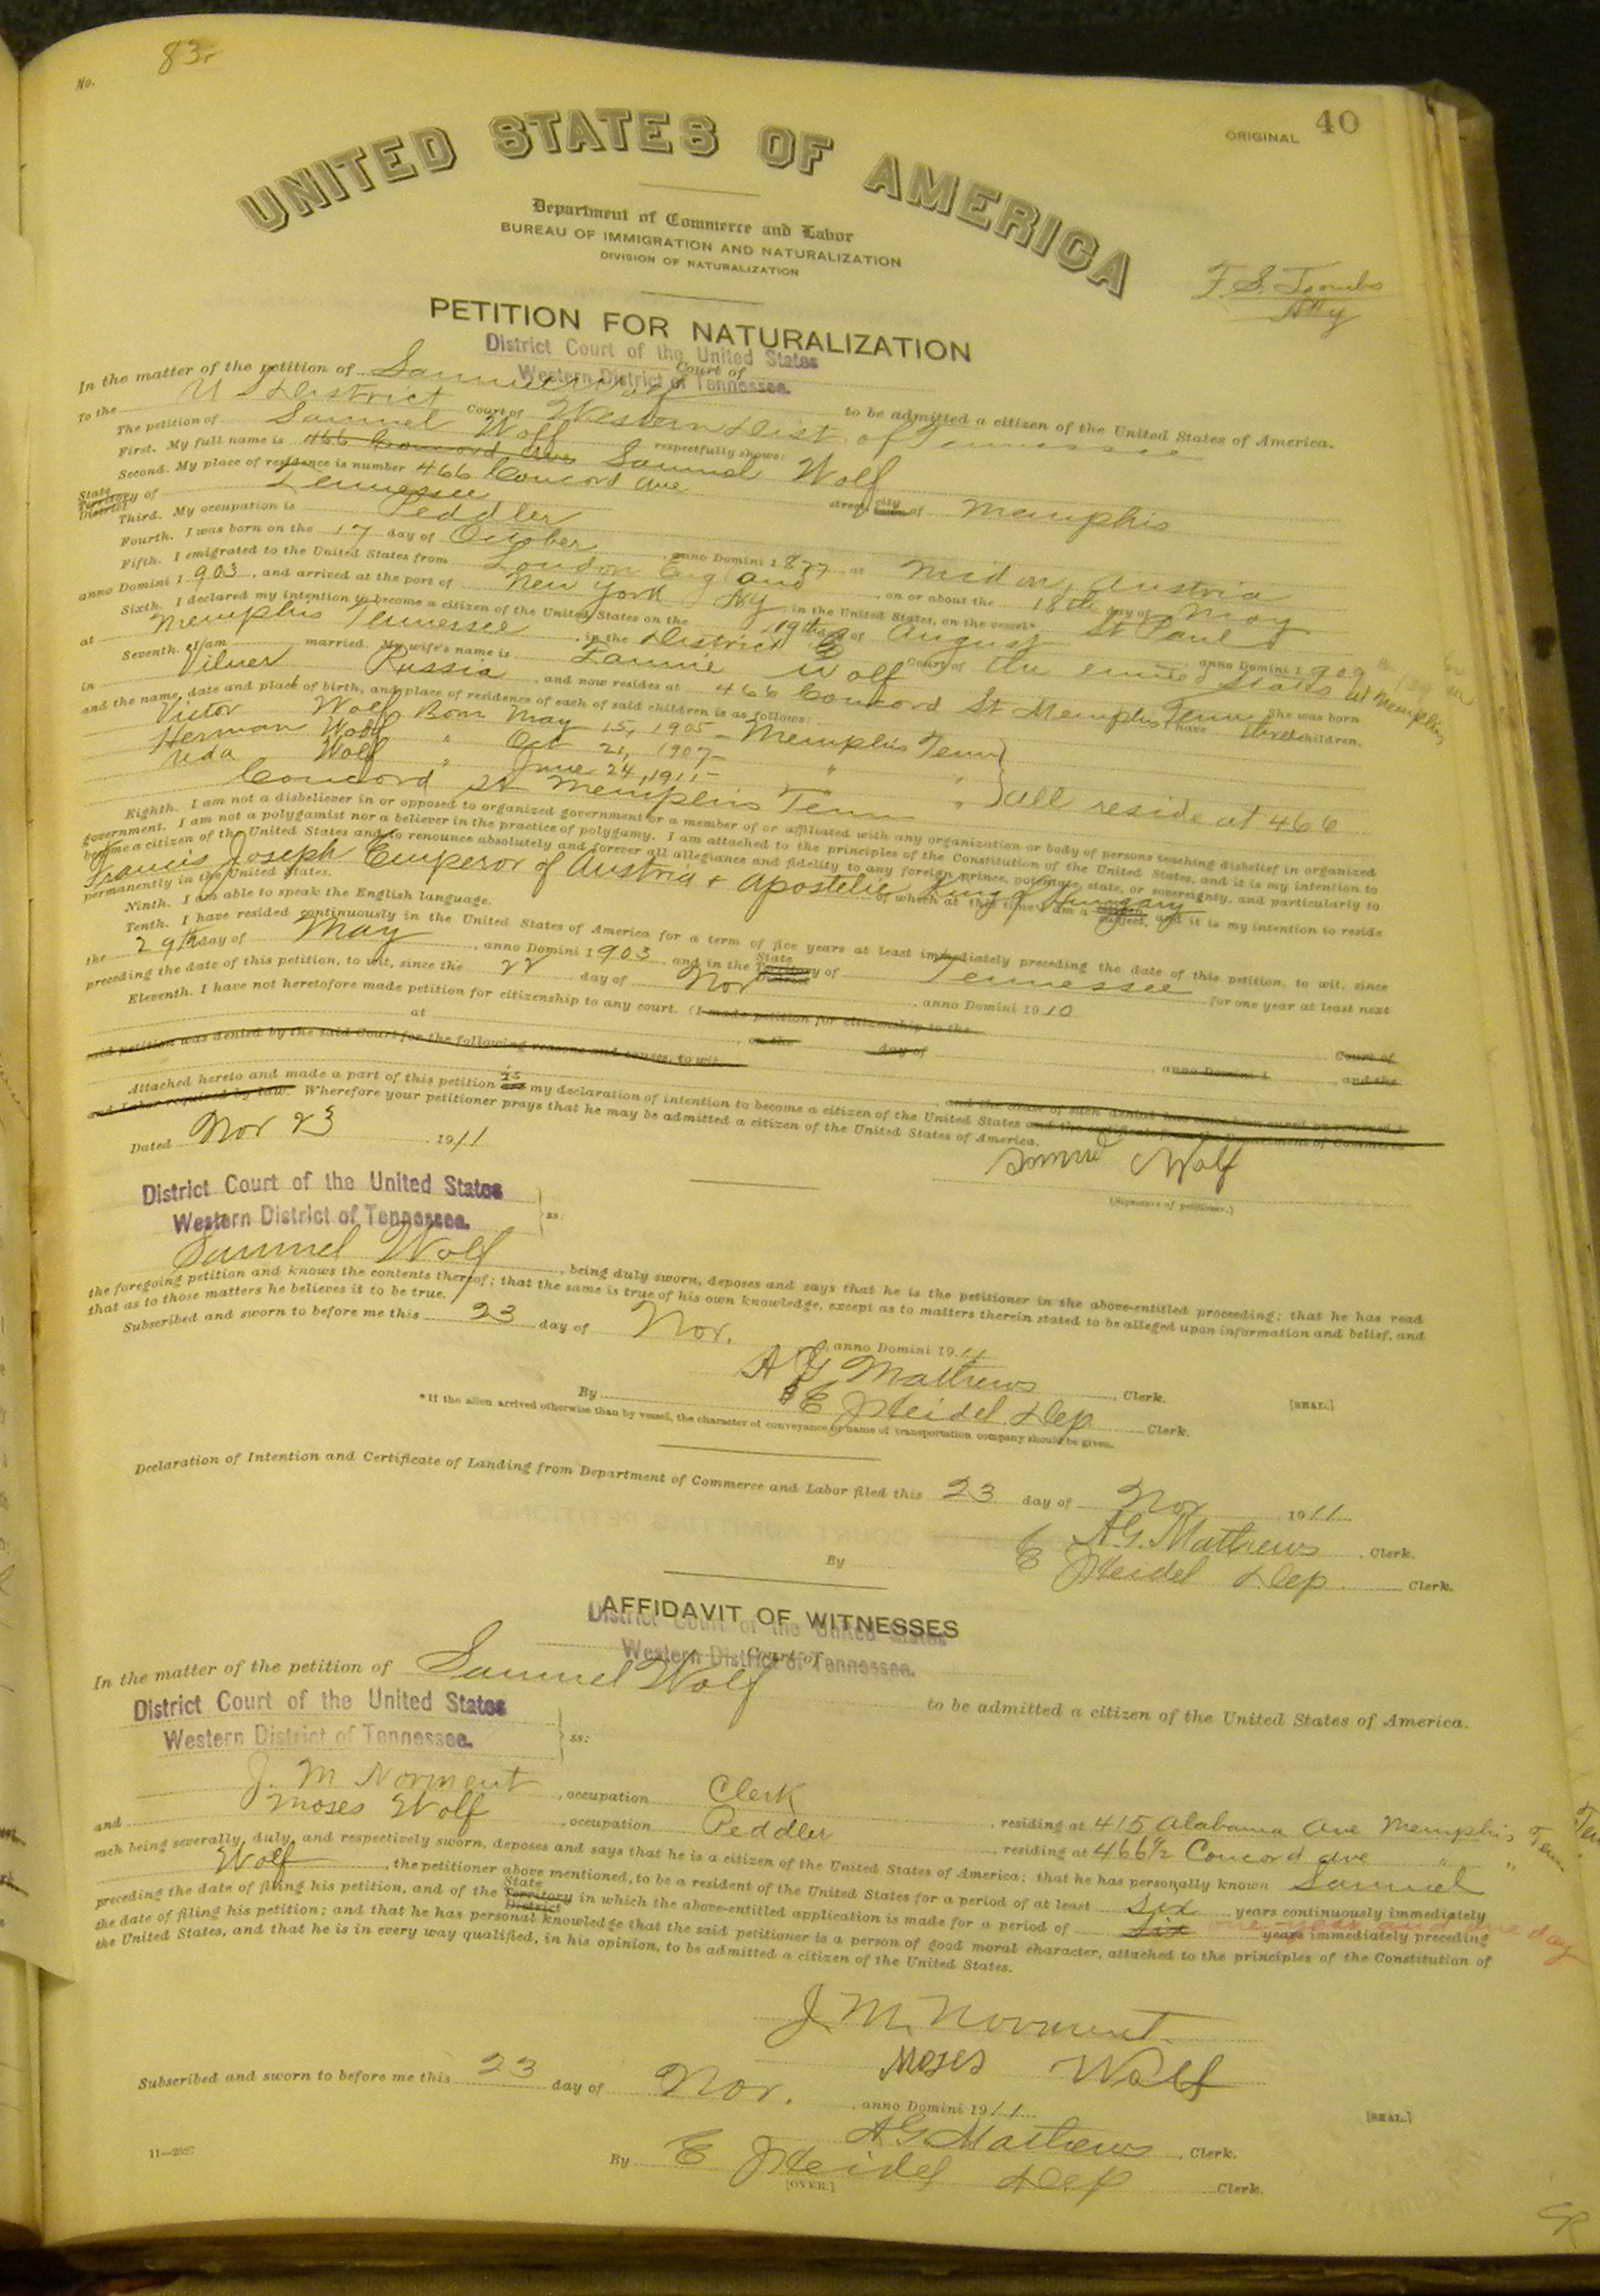 No. 83
ORIGINAL 40
UNITED STATES OF AMERICA
Department of Commerce and Labor
BUREAU OF IMMIGRATION AND NATURALIZATION
DIVISION OF NATURALIZATION
F. S. Toombs
Atty
PETITION FOR NATURALIZATION
District Court of the United States
Court of
Western District of Tennessee.
In the matter of the petition of Samuel Wolf to be admitted a citizen of the United States of America.
To the U S District Court of Western Dist. of Tennessee
The petition of Samuel Wolf respectfully shows:
First. My full name is 466 Concord Ave Samuel Wolf
Second. My place of residence is number 466 Concord Ave street, city of Memphis
State Territory District of Tennessee
Third. My occupation is Peddler
Fourth. I was born on the 17 day of October, anno Domini 1877, at Austria
Fifth. I emigrated to the United States from London England, on or about the 18th day of May
anno Domini 1903, and arrived at the port of New York NY, in the United States, on the vessel* St Paul
Sixth. I declared my intention to become a citizen of the United States on the 19th day of August, anno Domini 1909
at Memphis Tennessee, in the District Court of the United States at Memphis
Seventh. I am married. My wife's name is Fannie Wolf She was born
in Vilner Russia, and now resides at 466 Concord St Memphis Tenn I have three children,
and the name, date and place of birth, and place of residence of each of said children is as follows:
Victor Wolf Born May 15, 1905 - Memphis Tenn
Herman Wolf " Oct 21, 1907 - " "
Wolf " June 24, 1911 - " " } All reside at 466
Concord St Memphis Tenn
Eighth. I am not a disbeliever in or opposed to organized government or a member of or affiliated with any organization or body of persons teaching disbelief in organized
government. I am not a polygamist nor a believer in the practice of polygamy. I am attached to the principles of the Constitution of the United States, and it is my intention to
become a citizen of the United States and to renounce absolutely and forever all allegiance and fidelity to any foreign prince, potentate, state, or sovereignty, and particularly to
Francis Joseph Emperor of Austria & Apostolic King of Hungary of which at this time I am a subject, and it is my intention to reside
permanently in the United States.
Ninth. I am able to speak the English language.
Tenth. I have resided continuously in the United States of America for a term of five years at least immediately preceding the date of this petition, to wit, since
the 29th day of May, anno Domini 1903, and in the State Territory District of Tennessee for one year at least next
preceding the date of this petition, to wit, since the 22 day of Nov, anno Domini 1910
Eleventh. I have not heretofore made petition for citizenship to any court. (I made petition for citizenship to the
Court of
at, on the day of, anno Domini 1, and the
said petition was denied by the said Court for the following reasons and causes, to wit,
and the cause of such denial has since been cured or removed.)
Attached hereto and made a part of this petition is are my declaration of intention to become a citizen of the United States and the certificate from the Department of Commerce
and Labor required by law. Wherefore your petitioner prays that he may be admitted a citizen of the United States of America.
Dated Nov 23 1911
Samuel Wolf
(Signature of petitioner.)
District Court of the United States
Western District of Tennessee. } ss:
Samuel Wolf, being duly sworn, deposes and says that he is the petitioner in the above-entitled proceeding; that he has read
the foregoing petition and knows the contents thereof; that the same is true of his own knowledge, except as to matters therein stated to be alleged upon information and belief, and
that as to those matters he believes it to be true.
Subscribed and sworn to before me this 23 day of Nov., anno Domini 1911
A G Mathews, Clerk.
By E J Heidel Dep Clerk.
[SEAL.]
*If the alien arrived otherwise than by vessel, the character of conveyance or name of transportation company should be given.
Declaration of Intention and Certificate of Landing from Department of Commerce and Labor filed this 23 day of Nov 1911
A.G. Mathews, Clerk.
By E J Heidel Dep Clerk.
AFFIDAVIT OF WITNESSES
District Court of the United States
Court of
Western District of Tennessee.
In the matter of the petition of Samuel Wolf to be admitted a citizen of the United States of America.
District Court of the United States
Western District of Tennessee. } ss:
J. M Norment, occupation Clerk, residing at 415 Alabama Ave Memphis Tenn.
and Moses Wolf, occupation Peddler, residing at 466½ Concord Ave " "
each being severally, duly, and respectively sworn, deposes and says that he is a citizen of the United States of America; that he has personally known Samuel
Wolf, the petitioner above mentioned, to be a resident of the United States for a period of at least six years continuously immediately
preceding the date of filing his petition, and of the State Territory District in which the above-entitled application is made for a period of six one year and one day years immediately preceding
the date of filing his petition; and that he has personal knowledge that the said petitioner is a person of good moral character, attached to the principles of the Constitution of
the United States, and that he is in every way qualified, in his opinion, to be admitted a citizen of the United States.
J. M. Norment
Moses Wolf
Subscribed and sworn to before me this 23 day of Nov., anno Domini 1911
A G Mathews, Clerk.
By E J Heidel Dep Clerk.
[SEAL.]
[OVER.]